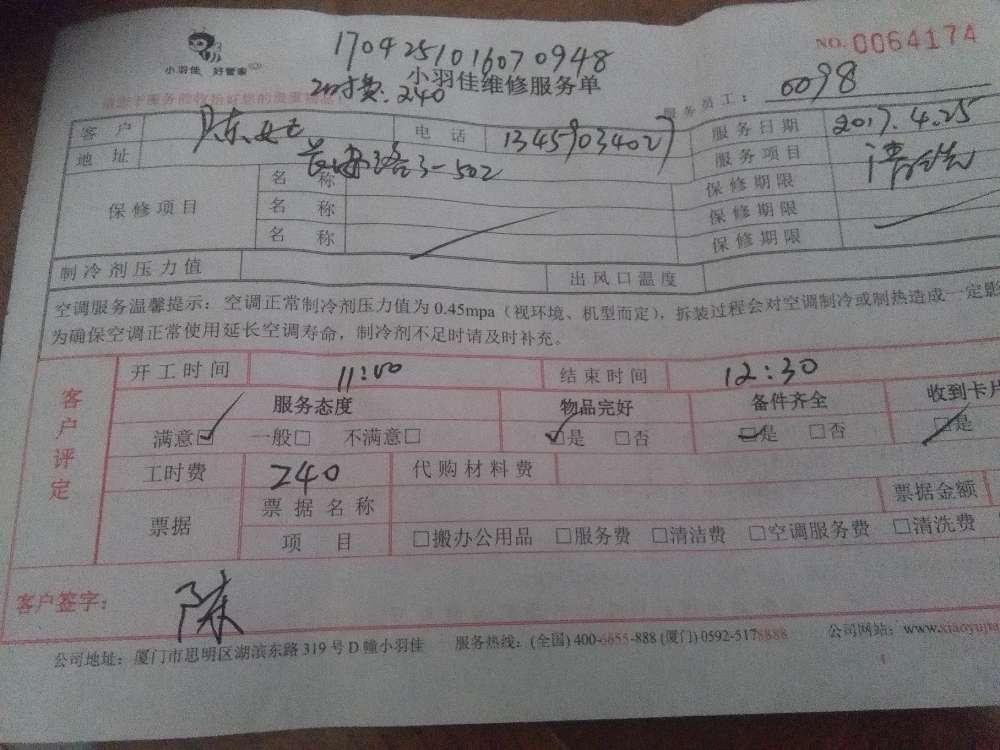 1704251016070948
NO.0064174
小羽佳 好管家
小羽佳维修服务单
工时费:240
服务员工: 0098
客户 陈女士 电话 13459034027 服务日期 2017.4.25
地址 3-502 服务项目 清洗
保修项目 名称 保修期限
名称 保修期限
名称 保修期限
制冷剂压力值 出风口温度
空调服务温馨提示：空调正常制冷剂压力值为0.45mpa（视环境、机型而定），拆装过程会对空调制冷或制热造成一定影
为确保空调正常使用延长空调寿命，制冷剂不足时请及时补充。
客户评定
开工时间 11:00 结束时间 12:30
服务态度 物品完好 备件齐全 收到卡片
满意☑ 一般□ 不满意□ ☑是 □否 ☑是 □否 ☑是
工时费 240 代购材料费
票据 票据名称 票据金额
项目 □搬办公用品 □服务费 □清洁费 □空调服务费 □清洗费
客户签字： 陈
公司地址：厦门市思明区湖滨东路319号D幢小羽佳 服务热线：(全国)400-6655-888 (厦门)0592-5178888 公司网站：www.xiaoyujia